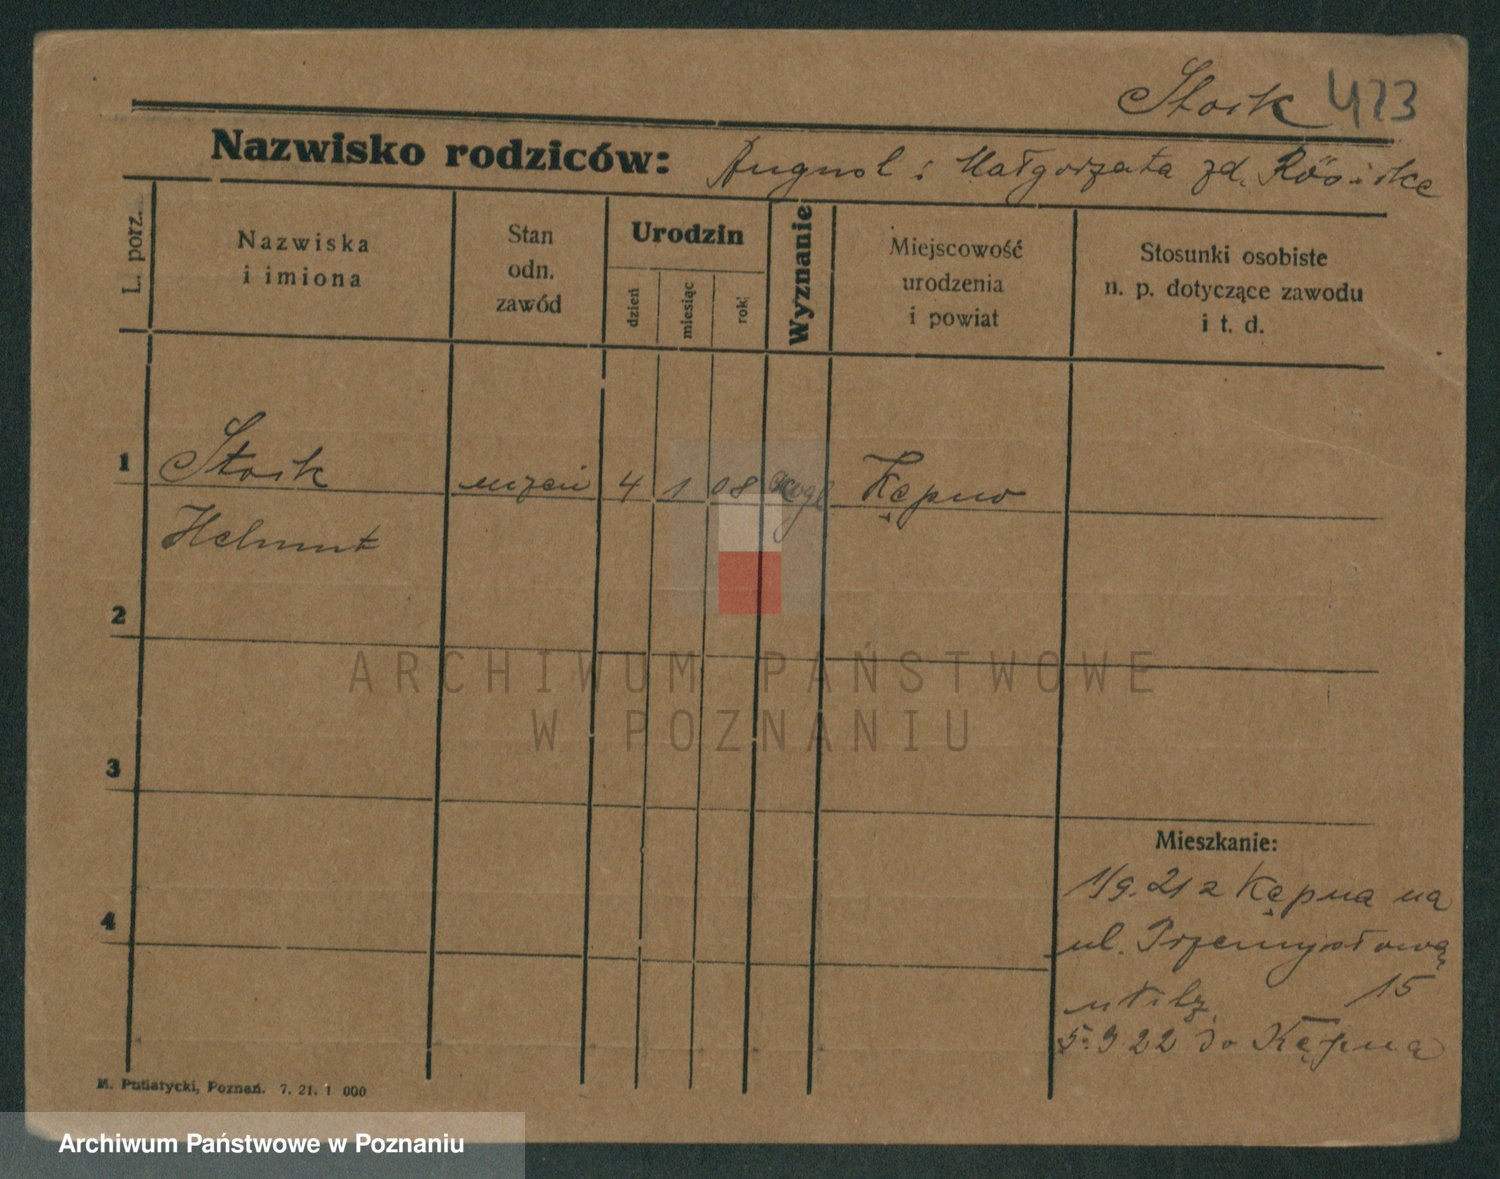 Stork 423
Nazwisko rodziców: August i Małgorzata zd.
L. porz.
Nazwiska
i imiona
Stan
odn.
zawód
Urodzin
dzień
miesiąc
rok
Wyznanie
Miejscowość
urodzenia
i powiat
Stosunki osobiste
n. p. dotyczące zawodu
i t. d.
1 Stork uczeń 4 1 08 Kępno
Helmut
2
ARCHIWUM PAŃSTWOWE
W POZNANIU
3
Mieszkanie:
1/9. 21 z Kępna na
4
ul. Przemysłową
15
5. 9 22 do Kępna
M. Putiatycki, Poznań. 7. 21. 1 000
Archiwum Państwowe w Poznaniu